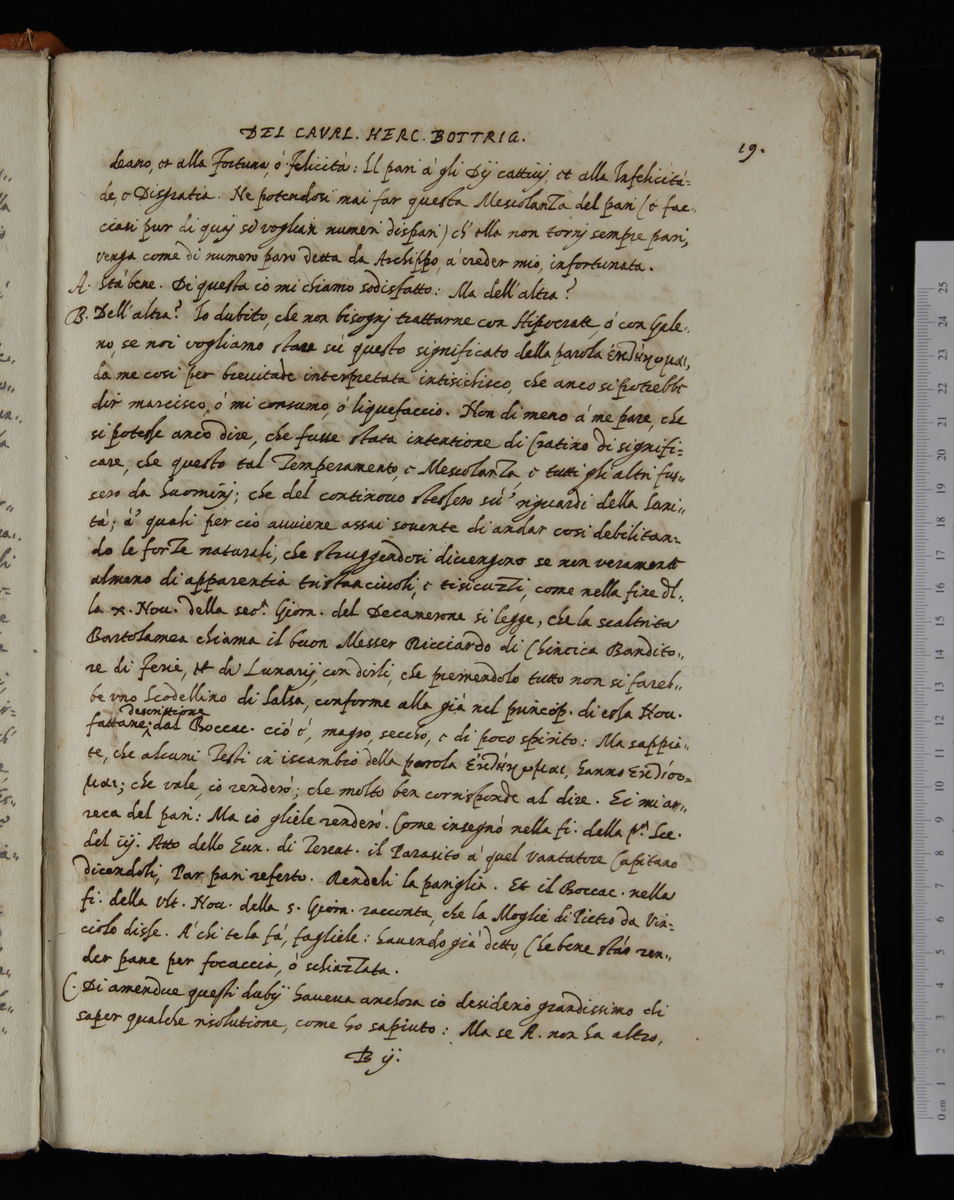 DEL CAVAL. HERC. BOTTRIG.
19.
deano, et alla Fortuna, ò felicità: Il pari à gli Dij cattiuj, et alla Infelicità=
de, e Disgratia. Ne potendosi mai far questa Mescolanza del pari (e fac„
ciasi pur di quaj si voglian numeri dispari) ch' ella non tornj sempre pari,
venga come di numero paro detta da Archippo, a' creder mio, infortunata.
A. Stà bene. Di questa io mi chiamo sodisfatto: Ma dell' altra?
B. Dell' altra? Io dubito, che non bisognj trattarne con Hipocrate, ò con Gale„
no, se noi vogliamo stare sù questo significato della parola ἐκτήκομαι,
da me cosi per breuitade interpretata intisichisco, che anco si potrebbe
dir marcisco, ò mi consumo, ò liquefaccio. Non di meno à me pare, che
si potesse anco dire, che fusse stata intentione di Cratino di signifi=
care, che questo tal Temperamento, e Mescolanza, e tutti gli altri fus„
sero da huominj; che del continouo stessero sù' riguardi della Sani„
tà; à' quali per ciò auuiene assai souente di andar cosi debilitan„
do le forze naturali, che struggendosi diuengono se non veramente
almeno di apparentia tristanciuoli, e tisicuzzi, come nella fine del„
la x. Nou. della seo.ª Giorn. del Decamerone si legge, che la scaltrita
Bartolamea chiama il buon Messer Ricciardo di Chinzica Bandito„
re di ferie, et di Lunarij, con dirli, che premendolo tutto non si fareb„
be vno Scodellino di Salsa, conforme alla già nel princip. di essa Nou.
fattane descrittione dal Boccac. ciò è, magro, secco, e di poco spirito: Ma sappia„
te, che alcuni Testi in iscambio della parola ἐκτήκομαι, hanno
μαι; che vale, io renderò; che molto ben corrisponde al dire. Ei mi ar„
reca del pari: Ma io gliele renderò. Come insegnò nella fi. della p.ª Sce.
del iij. Atto dello Eun. di Terent. il Parasito a' quel vantatore Capitano
dicendoli, Par pari referto. Rendeli la pariglia. Et il Boccac. nella
fi. della vlt. Nou. della 5. Giorn. racconta, che la Moglie di Pietro da Vin=
ciolo disse. A' chi te la fà, fagliele: hauendo già detto, Che bene stàò ren„
der pane per focaccia, ò schiazzata.
C. Di amendue questi dubij haueua anchora io desiderio grandissimo di
saper qualche risolutione, come ho saputo: Ma se A. non ha altro,
B ij.